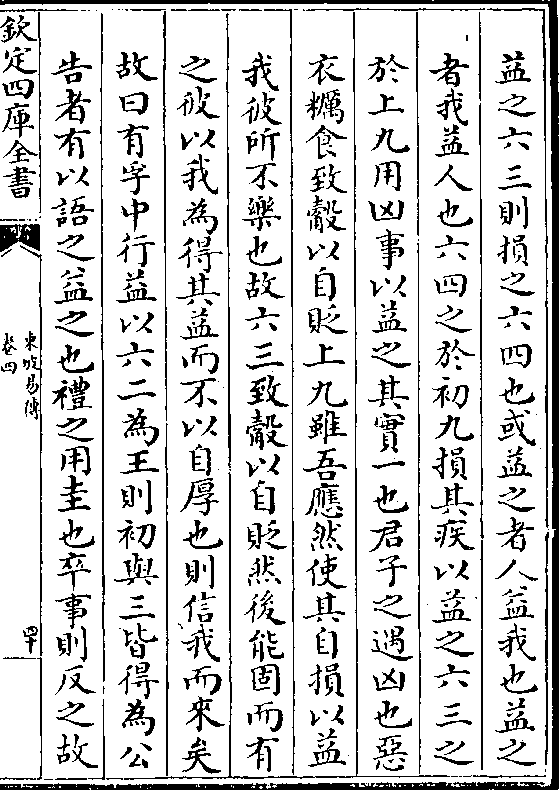 益之六三則損之六四也或益之者人益我也益之
者我益人也六四之於初九損其疾以益之六三之
於上九用凶事以益之其實一也君子之遇凶也惡
衣糲食致觳以自貶上九雖吾應然使其自損以益
我彼所不樂也故六三致觳以自貶然後能固而有
之彼以我為得其益而不以自厚也則信我而來矣
故曰有孚中行益以六二為王則初與三皆得為公
告者有以語之益之也禮之用圭也卒事則反之故
欽定四庫全書
東坡易傳
卷四
四十